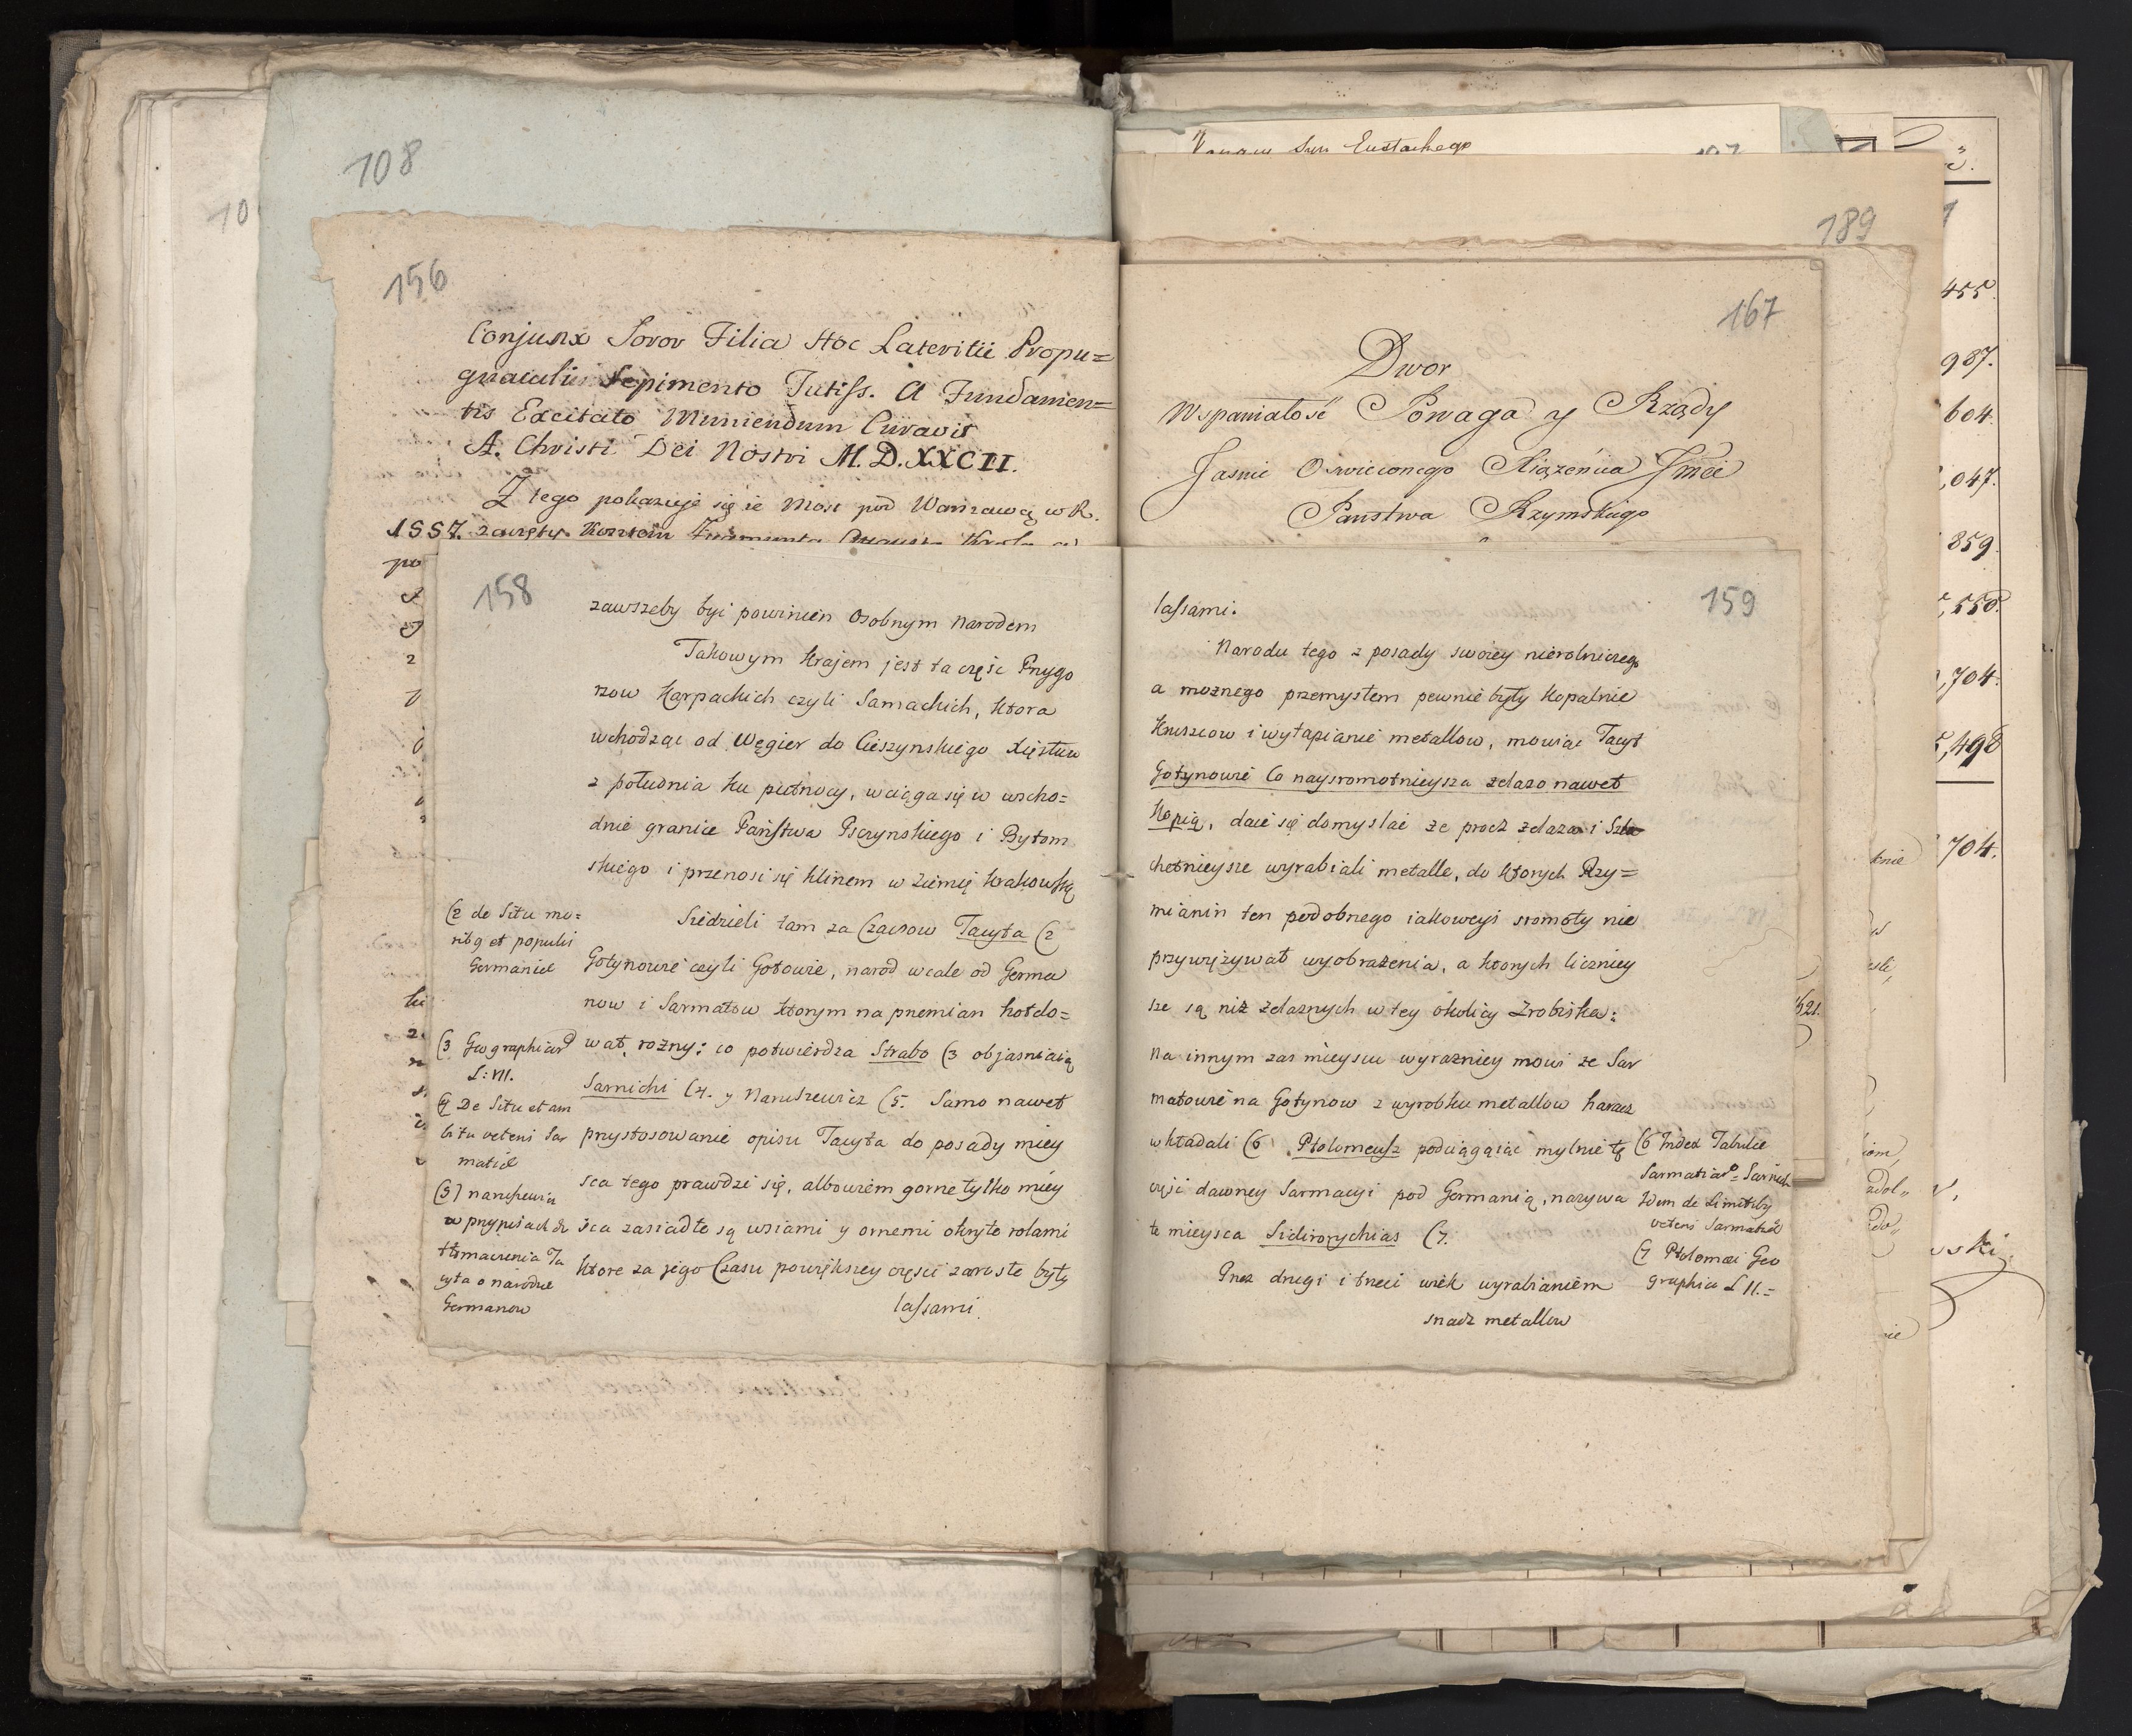 108
10
156
Conjunx Soror Filia Hoc Lateritii Propu=
gnaculi Sepimento Tutiss. A Fundamen=
tis Excitato Muniendum Curavit
A. Christi Dei Nostri M.D.XXCII.
Z tego pokazuje się że Most pod Warszawą w R.
1557. zaczęty kosztem Zygmunta Augusta Krola
po
158
zawszeby być powinien osobnym narodem
Takowym krajem jest ta częsc Przygo
rzow Karpackich czyli Sarmackich, ktora
wchodząc od Węgier do Cieszynskiego Xięstwa
z południa ku pułnocy, wciąga się w wscho=
dnie granice Państwa Psczynskiego i Bytom
skiego i przenosi się klinem w Ziemię Krakowską
Siedzieli tam za Czasow Tacyta (2
Gotynowie czyli Gotowie, narod wcale od Germa
now i Sarmatow ktorym na przemian hołdo=
wał, rożny: co potwierdza Strabo (3 objasniaią
Sarnicki (4. y Naruszewicz (5. Samo nawet
przystosowanie opisu Tacyta do posady miey
sca tego prawdzi się, albowiem gorne tylko miey
sca zasiadłe są wsiami y ornemi okryte rolami
ktore za jego Czasu powiększey częsci zarosłe były
lassami.
(2 de Situ mo=
ribq et populis
Germaniæ
(3 Geographiar
L: VII.
(4 De Situ et am
bitu veteris Sar
matiæ
(5) naruszewicz
w przypisach do
tłomaczenia Ta
cyta o narodzie
Germanow
Vanaw Syn Eustachego
107
189
167
Dwor
Wspaniałość Powaga y Rządy
Jasnie Oswieconego Xiążęcia Jmci
Panstwa Rzymskiego
159
lassami.
Narodu tego z posady swoiey nierolniczego
a możnego przemysłem pewnie były kopalnie
Kruszcow i wytapianie metallow, mowiąc Tacyt
Gotynowie Co naysromotnieysza żelazo nawet
Kopią, daie się domyslać że procz żelaza i Szla
chetnieysze wyrabiali metalle, do ktorych Rzy=
mianin ten podobnego iakoweyś sromoty nie
przywięzywał wyobrażenia, a ktorych liczniey
sze są niż żelaznych w tey okolicy Zrobiska:
Na innym zas mieyscu wyrazniey mowi że Sar
matowie na Gotynow z wyrobku metallow haracz
wkładali (6 Ptolomeusz podciągaiąc mylnie tę
część dawney Sarmacyi pod Germanią, nazywa
te mieysca Sidirorychias (7.
Przez drugi i trzeci wiek wyrabianiem
snadz metallow
(6 Index Tabulæ
Sarmatiar = Sarnicki
Idem de Limitiby
veteris Sarmatiæ
(7 Ptolomæi Geo
graphia L II.=
455.
987.
604.
,047.
859.
,550.
,704.
,498
704.
621.